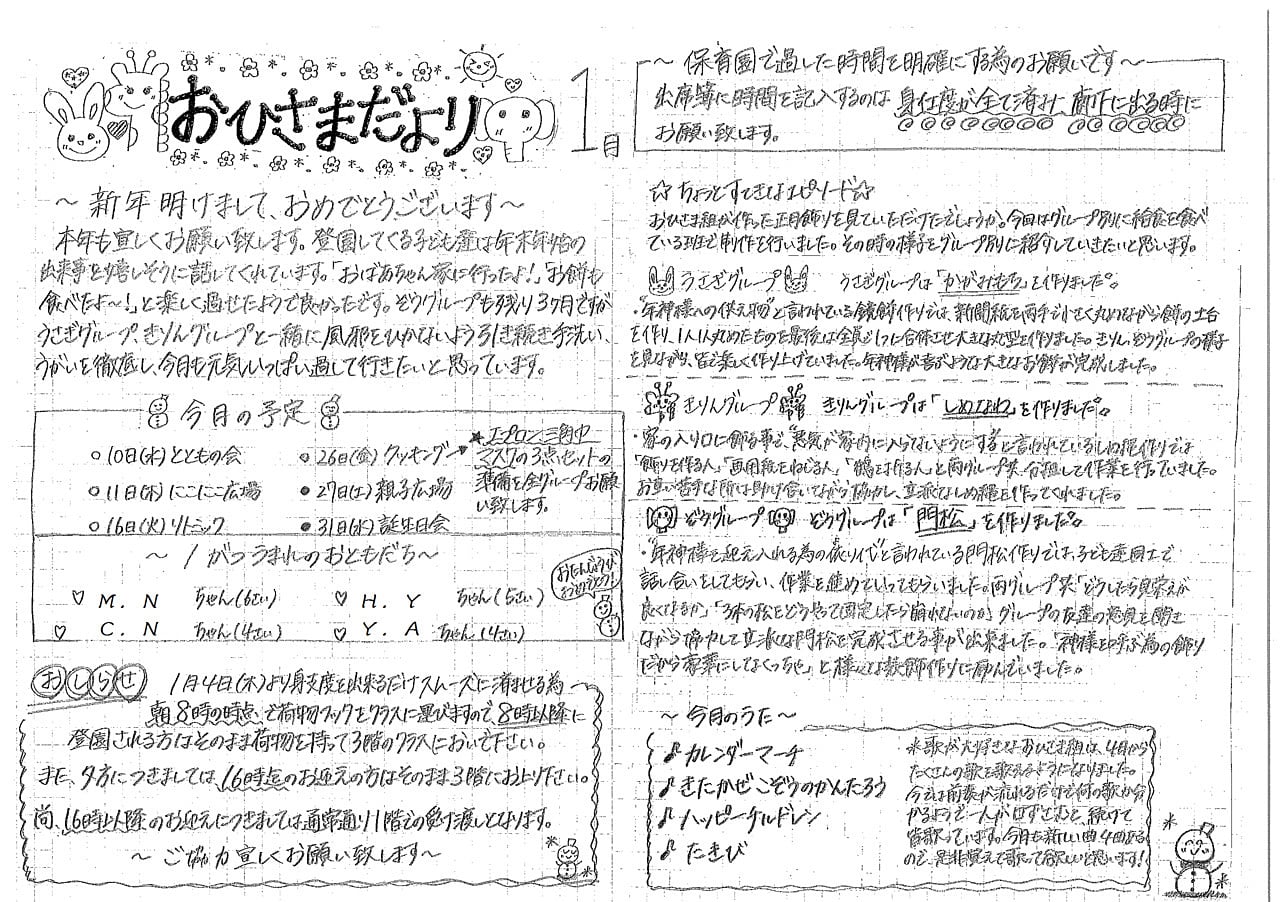 おひさまだより
1月
～新年明けまして、おめでとうございます～
本年も宜しくお願い致します。登園してくる子ども達は年末年始の
出来事を嬉しそうに話してくれています。「おばあちゃん家に行ったよ！」「お餅も
食べたよ～！」と楽しく過せたようで良かったです。ぞうグループも残り3ヶ月ですが
うさぎグループ、きりんグループと一緒に風邪をひかないよう引き続き手洗い、
うがいを徹底し、今月も元気いっぱい過して行きたいと思っています。
今月の予定
○10日(水)とともの会
○11日(木)にこにこ広場
○16日(火)リトミック
●26日(金)クッキング
●27日(土)親子広場
●31日(水)誕生日会
★エプロン、三角巾
マスクの3点セットの
準備を全グループお願
い致します。
～1がつうまれのおともだち～
♡ M.N ちゃん(6さい)
♡ H.Y ちゃん(5さい)
♡ C.N ちゃん(4さい)
♡ Y.A ちゃん(4さい)
おたんじょうび
おめでとう！
おしらせ
1月4日(木)より身支度を出来るだけスムーズに済ませる為
朝8時の時点で荷物フックをクラスに運びますので、8時以降に
登園される方はそのまま荷物を持って3階のクラスにおいで下さい。
また、夕方につきましては、16時点のお迎えの方はそのまま3階にお上り下さい。
尚、16時以降のお迎えにつきましては通常通り1階での受け渡しとなります。
～ご協力宜しくお願い致します～
～保育園で過した時間を明確にする為のお願いです～
出席簿に時間を記入するのは身仕度が全て済み、廊下に出る時に
お願い致します。
☆ちょっとすてきなエピソード☆
おひさま組が作った正月飾りを見ていただけたでしょうか。今回はグループ別に給食を食べ
ている班で制作を行いました。その時の様子をグループ別に紹介していきたいと思います。
うさぎグループ
うさぎグループは「かがみもち」を作りました。
・"年神様への供え物"と言われている鏡餅作りでは、新聞紙を両手で小さく丸めながら餅の土台
を作り、1人1人丸めたものを最後は全員で1つに合体させ大きな丸型を作りました。きりん、ぞうグループの様子
を見ながら、皆で楽しく作り上げていました。年神様が喜ぶような大きなお餅が完成しました。
きりんグループ
きりんグループは「しめなわ」を作りました。
・家の入り口に飾る事で、"悪気が家内に入らないようにする"と言われているしめ縄作りでは
「飾りを作る人」「画用紙をねじる人」「鶴を作る人」と両グループ共、分担して作業を行っていました。
お互い苦手な所は助け合いながら協力し、立派なしめ縄を作ってくれました。
ぞうグループ
ぞうグループは「門松」を作りました。
・"年神様を迎え入れる為の依り代"と言われている門松作りでは、子ども達同士で
話し合いをしてもらい、作業を進めていってもらいました。両グループ共「どうしたら見栄えが
良くなるか」「3本の松をどうやって固定したら崩れないのか」グループの友達の意見を聞き
ながら協力して立派な門松を完成させる事が出来ました。「神様を呼ぶ為の飾り
だから豪華にしなくっちゃ」と様々な装飾作りに励んでいました。
～今月のうた～
♪カレンダーマーチ
♪きたかぜこぞうのかんたろう
♪ハッピーチルドレン
♪たきび
※歌が大好きなおひさま組は、4月から
たくさんの歌を歌えるようになりました。
今では前奏が流れるだけで何の歌か分
かるようで一人が口ずさむと、続けて
皆歌っています。今月も新しい曲4曲ある
ので、是非覚えて歌って欲しいと思います！